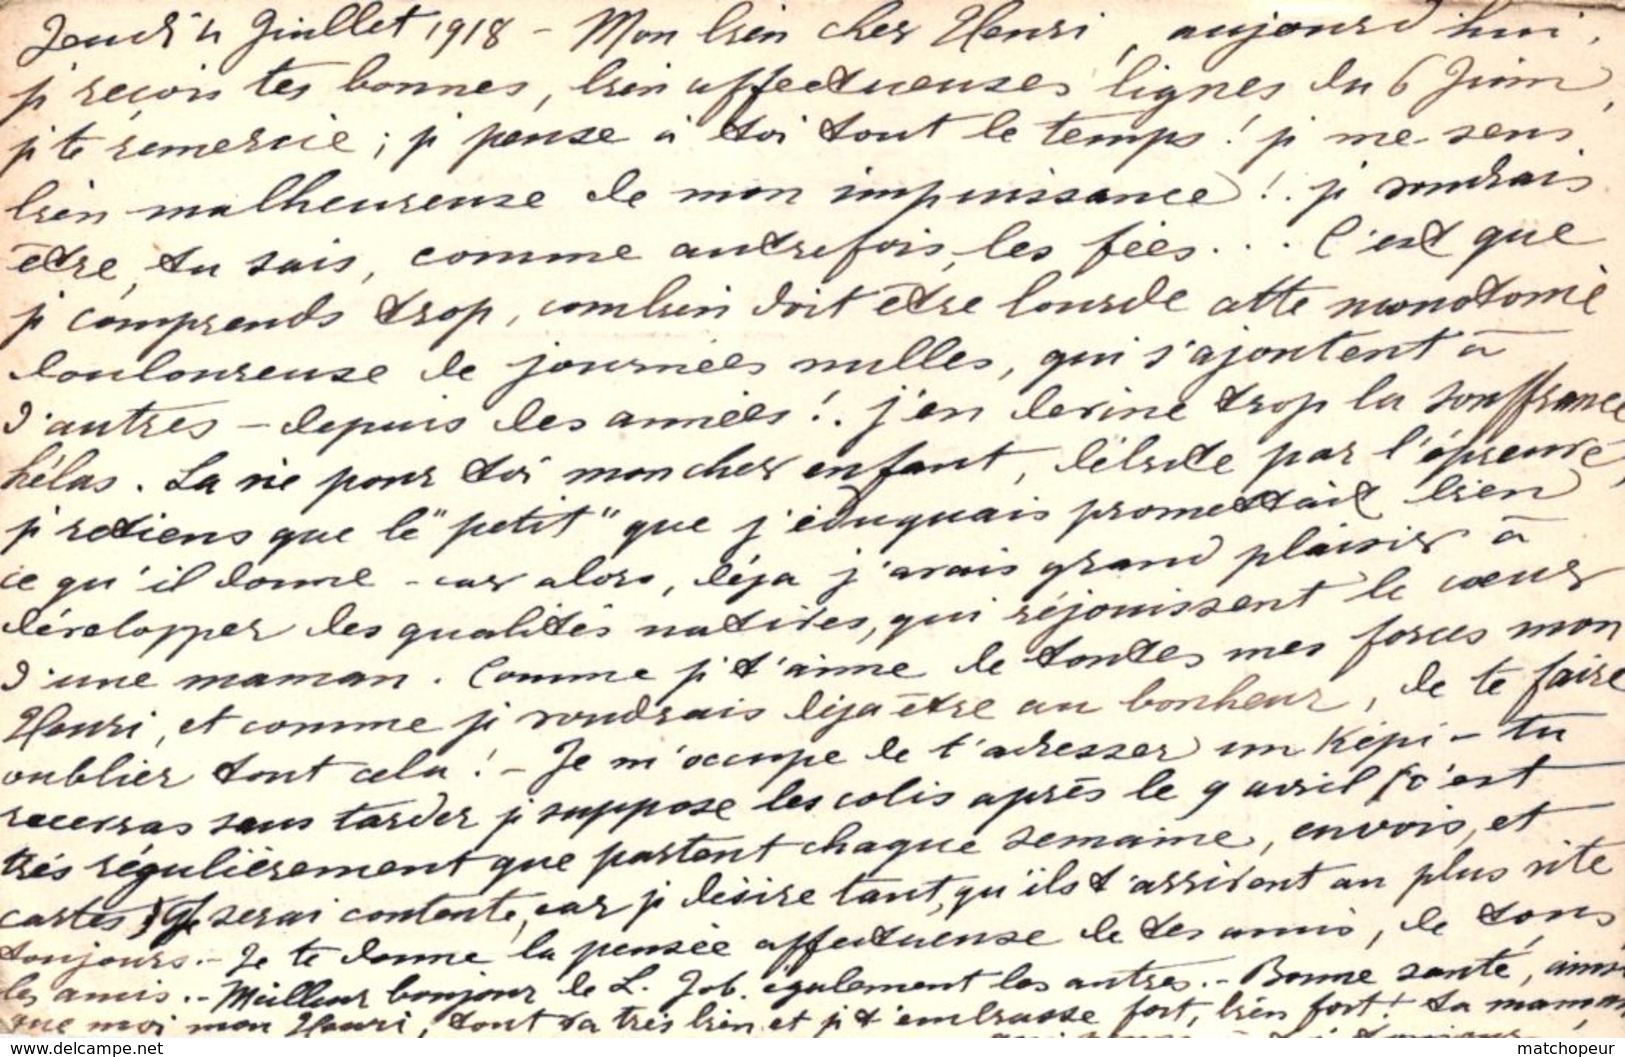 Jeudi 4 Juillet 1918 - Mon bien cher Henri, aujourd'hui,
je reçois tes bonnes, bien affectueuses lignes du 6 Juin,
je te remercie ; je pense à toi tout le temps ! je me sens
bien malheureuse de mon impuissance ! . je voudrais
être, tu sais, comme autrefois, les fées . . . C'est que
je comprends trop, combien doit être lourde cette monotonie
douloureuse de journées nulles, qui s'ajoutent à
d'autres - depuis des années ! . j'en devine trop la souffrance
hélas . La vie pour toi mon cher enfant, débute par l'épreuve,
je retiens que le "petit" que j'éduquais promettait bien
ce qu'il donne - car alors, déja j'avais grand plaisir à
développer des qualités natives, qui réjouissent le cœur
d'une maman . Comme je t'aime de toutes mes forces mon
Henri, et comme je voudrais déja être au bonheur, de te faire
oublier tout cela ! - Je m'occupe de t'adresser un Képi - tu
recevras sans tarder je suppose les colis après le 9 avril (c'est
très régulièrement que partent chaque semaine, envois, et
cartes) je serai contente, car je désire tant, qu'ils t'arrivent au plus vite
toujours. - Je te donne la pensée affectueuse de tes amis, de tous
les amis . - Meilleur bonjour de L. Job. également les autres. - Bonne santé, ainsi
que moi mon Henri, tout va très bien et je t'embrasse fort, bien fort ! ta maman
www.delcampe.net
matchopeur